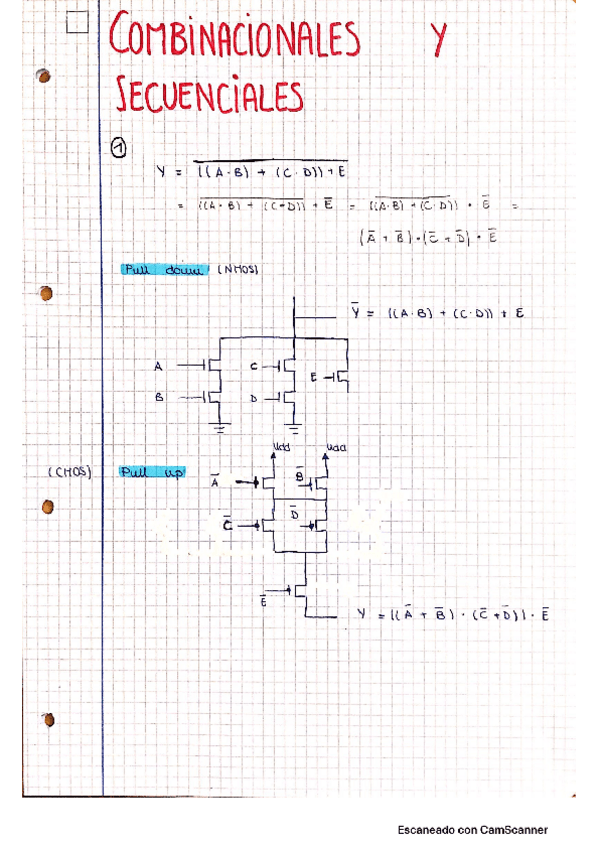 COMBINACIONALES Y
SECUENCIALES
1
Y = \overline{((A·B) + (C·D)) + E}
= \overline{((A·B) + (C·D))} + E̅ = \overline{((A·B) + (C·D))} · E̅ =
(A̅ + B̅)·(C̅ + D̅) · E̅
Pull down (NMOS)
Y̅ = ((A·B) + (C·D)) + E
A C
E
B D
Vdd Vdd
(CMOS) Pull up
A̅ B̅
C̅ D̅
E̅
Y = ((A̅ + B̅) · (C̅ + D̅)) · E̅
Escaneado con CamScanner